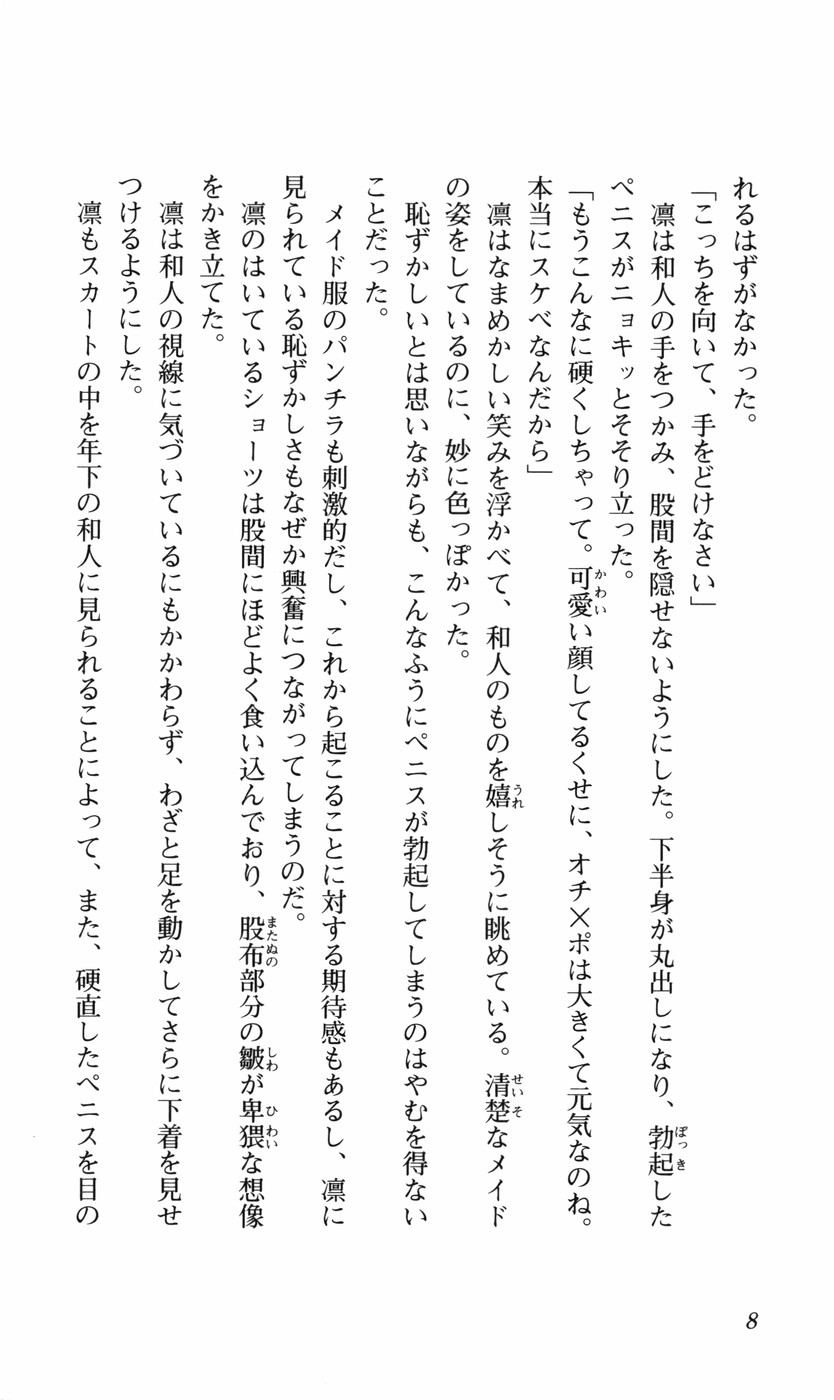 れるはずがなかった。
「こっちを向いて、手をどけなさい」
凛は和人の手をつかみ、股間を隠せないようにした。下半身が丸出しになり、勃起した
ペニスがニョキッとそそり立った。
「もうこんなに硬くしちゃって。可愛い顔してるくせに、オチ×ポは大きくて元気なのね。
本当にスケベなんだから」
凛はなまめかしい笑みを浮かべて、和人のものを嬉しそうに眺めている。清楚なメイド
の姿をしているのに、妙に色っぽかった。
恥ずかしいとは思いながらも、こんなふうにペニスが勃起してしまうのはやむを得ない
ことだった。
メイド服のパンチラも刺激的だし、これから起こることに対する期待感もあるし、凛に
見られている恥ずかしさもなぜか興奮につながってしまうのだ。
凛のはいているショーツは股間にほどよく食い込んでおり、股布部分の皺が卑猥な想像
をかき立てた。
凛は和人の視線に気づいているにもかかわらず、わざと足を動かしてさらに下着を見せ
つけるようにした。
凛もスカートの中を年下の和人に見られることによって、また、硬直したペニスを目の
8